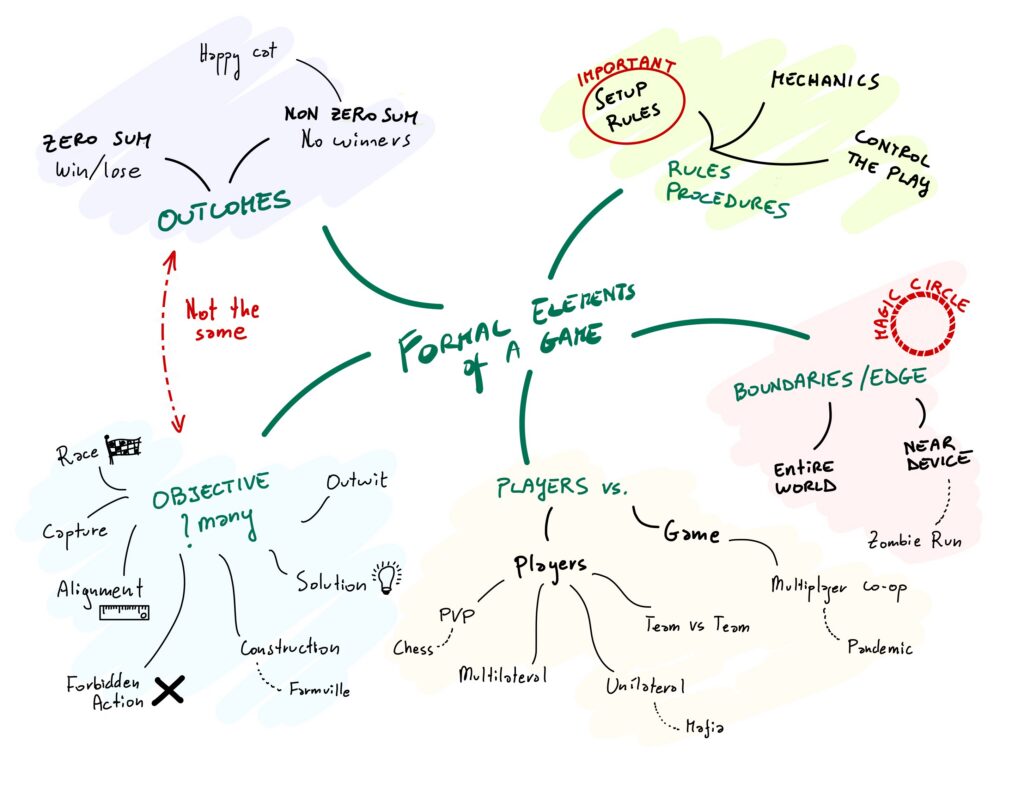 Happy cat
ZERO SUM
Win/lose
NON ZERO SUM
No winners
OUTCOMES
IMPORTANT
SETUP
RULES
MECHANICS
CONTROL
THE PLAY
RULES
PROCEDURES
Not the
same
FORMAL ELEMENTS
of A GAME
MAGIC CIRCLE
BOUNDARIES/EDGE
ENTIRE
WORLD
NEAR
DEVICE
Zombie Run
Race
Capture
Alignment
Forbidden
Action
OBJECTIVE
? many
Outwit
Solution
Construction
Farmville
PLAYERS vs.
Players
Game
PVP
Chess
Multilateral
Unilateral
Mafia
Team vs Team
Multiplayer co-op
Pandemic